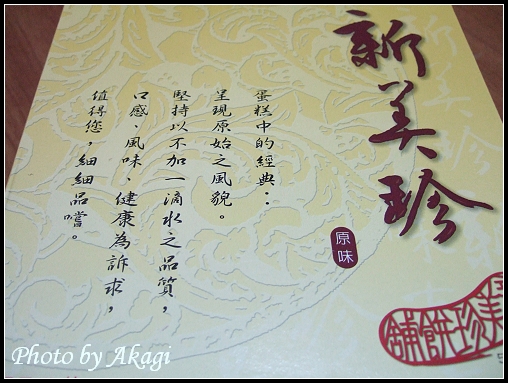 新美珍
原味
蛋糕中的經典：
呈現原始之風貌。
堅持以不加一滴水之品質，
口感、風味、健康為訴求，
值得您，細細品嚐。
美珍餅舖
Photo by Akagi